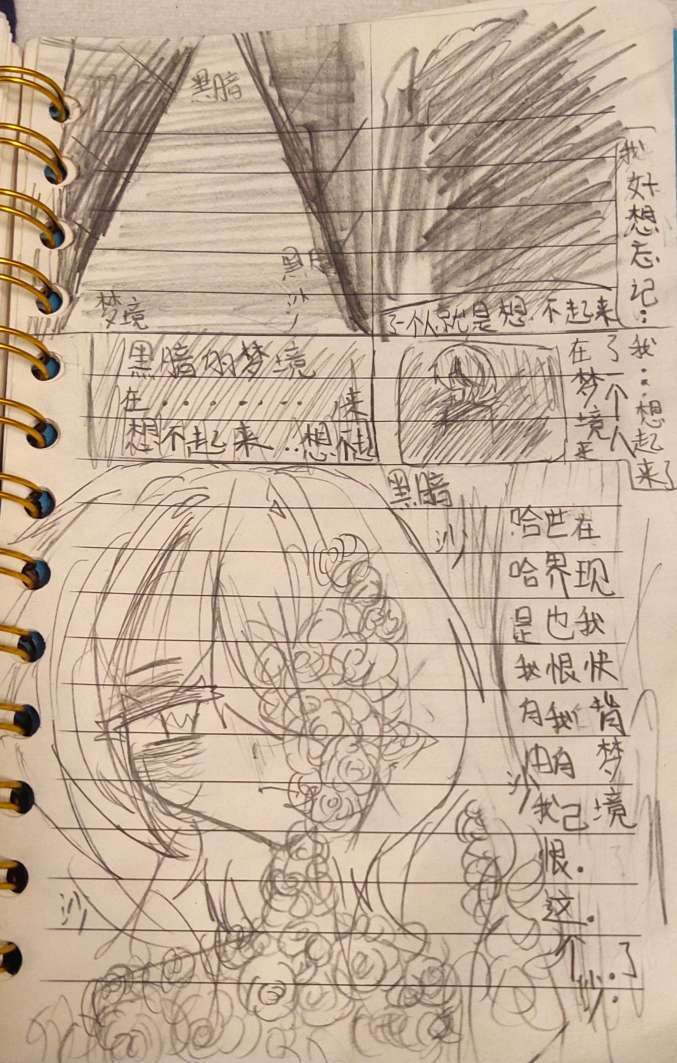 黑暗
黑暗
沙
梦境
我好想忘记:
了一个人就是想.不起来
黑暗的梦境
在.......来
想不起来..想不起
我...想起来了
了一个人
在梦境里
黑暗
沙
哈哈是我有由我恨.这.个
世界也恨我自己
在现我快背梦境了
沙
沙
沙.